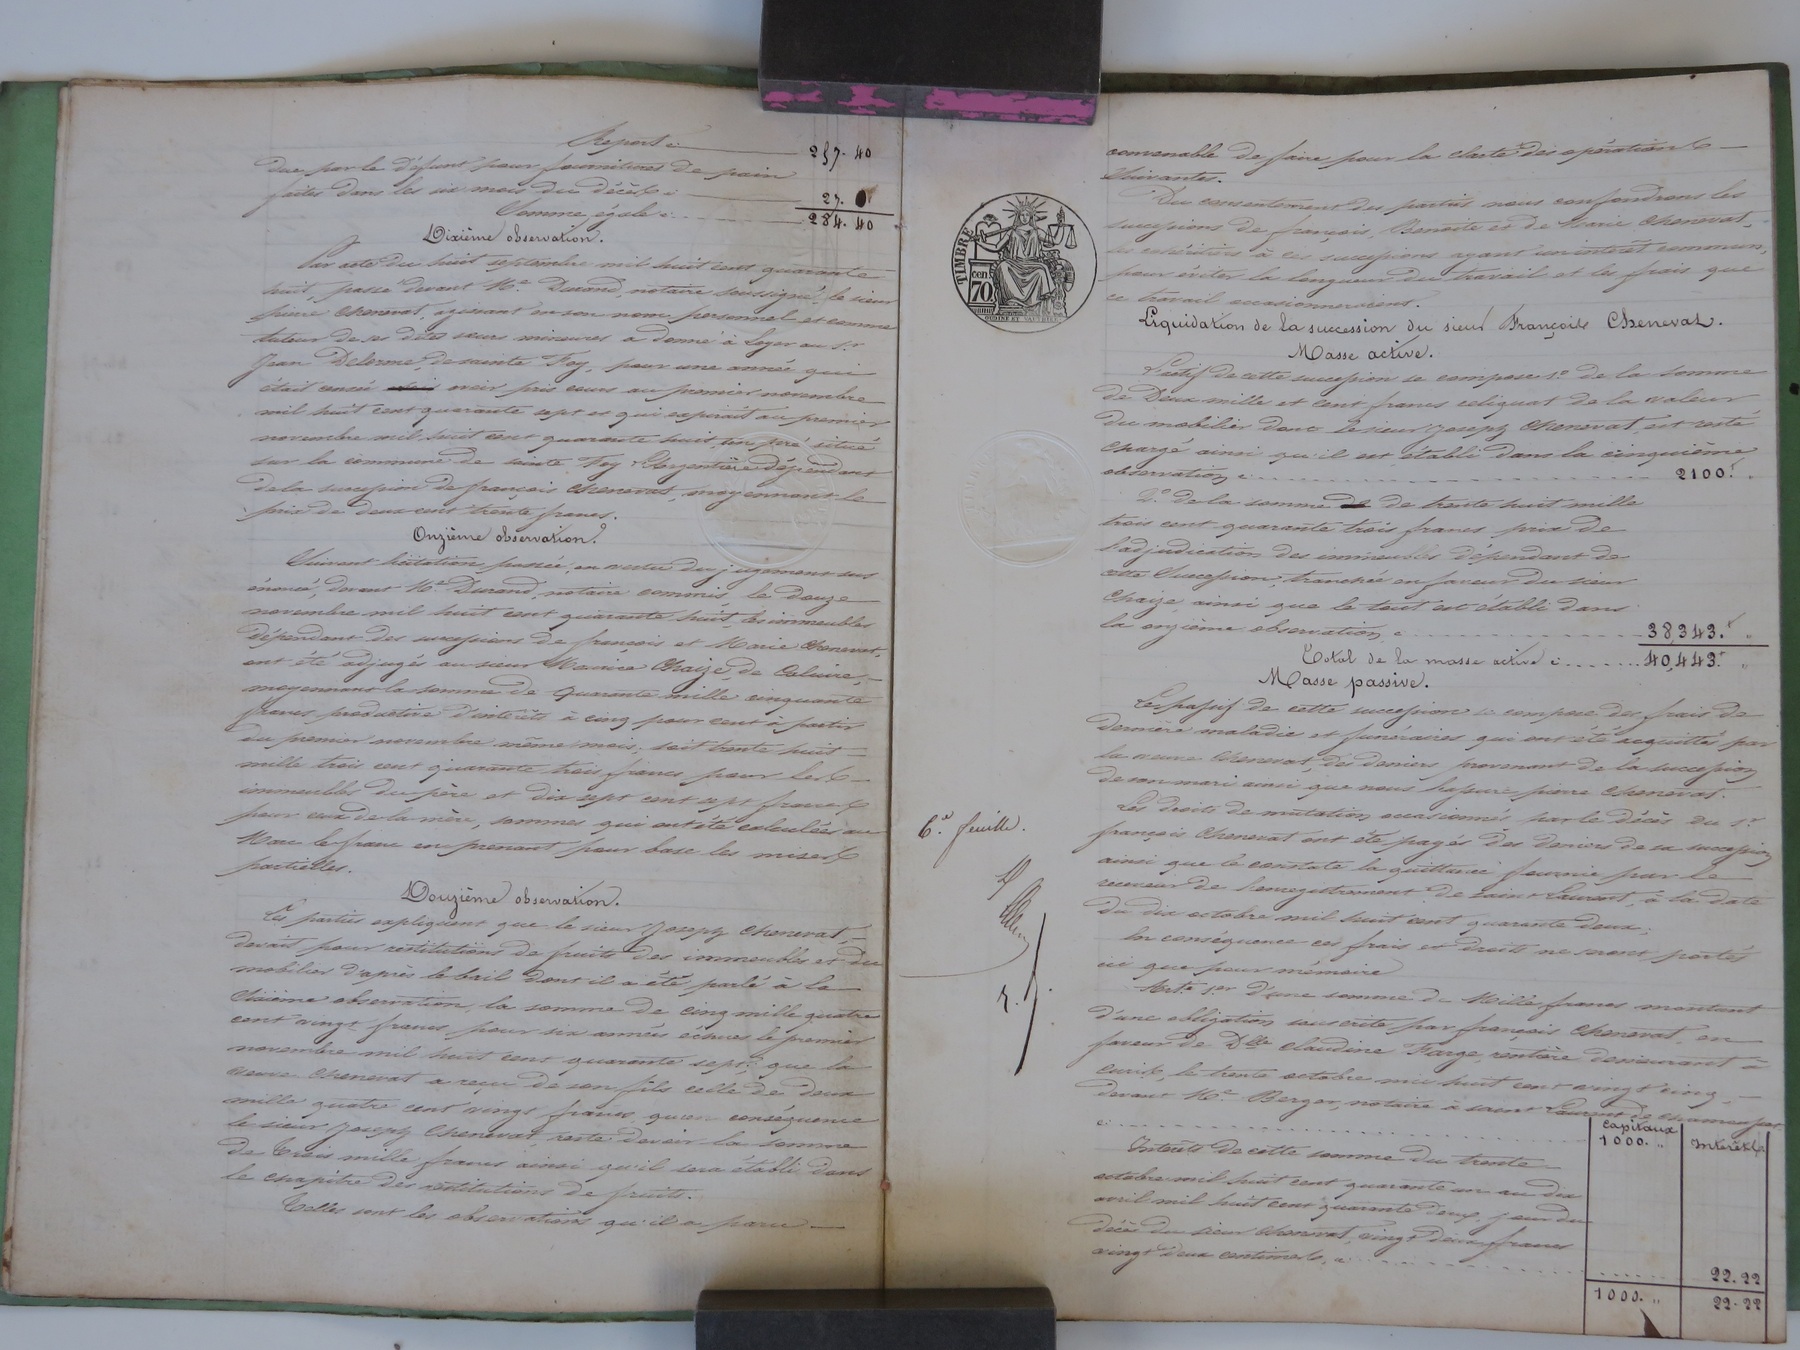 Report c. 257. 40
due par le défunt pour fournitures de pain
faites dans les six mois du décès c. 27. 0
Somme égale c. 284. 40
Dixième observation.
Par acte du huit septembre mil huit cent quarante
huit, passé devant Me. Durand, notaire soussigné, le sieur
pierre Chenevat, agissant en son nom personnel et comme
tuteur de ses dites sœurs mineures a donné à loyer au sr.
Jean Delorme, de sainte Foy, pour une année qui
était censée avoir pris cours au premier novembre
mil huit cent quarante sept et qui expirait au premier
novembre mil huit cent quarante huit, un pré situé
sur la commune de sainte Foy l'Argentière dépendant
de la succession de françois Chenevat, moyennant le
prix de deux cent trente francs.
Onzième observation.
Suivant licitation passée, en vertu du jugement sus
énoncé, devant Me. Durand, notaire commis, le douze
novembre mil huit cent quarante huit, les immeubles
dépendant des successions de françois et Marie Chenevat,
ont été adjugés au sieur Maurice Chaize, de Caluire,
moyennant la somme de quarante mille cinquante
francs, productive d'intérêts à cinq pour cent à partir
du premier novembre même mois; soit trente huit
mille trois cent quarante trois francs pour les
immeubles du père et dix sept cent sept francs
pour ceux de la mère, sommes qui ont été calculées au
Marc le franc en prenant pour base les mises
partielles.
Douzième observation.
Les parties expliquent que le sieur Joseph Chenevat,
devait pour restitutions de fruits des immeubles et du
mobilier d'après le bail dont il a été parlé à la
sixième observation, la somme de cinq mille quatre
cent vingt francs, pour six années échues le premier
novembre mil huit cent quarante sept; que la
veuve Chenevat a reçu de son fils celle de deux
mille quatre cent vingt francs, qu'en conséquence
le sieur Joseph Chenevat, reste devoir la somme
de trois mille francs ainsi qu'il sera établi dans
le chapitre des restitutions de fruits.
Telles sont les observations qu'il a paru
convenable de faire pour la clarté des opérations
suivantes.
Du consentement des parties nous confondrons les
successions de françois, Benoite et de Marie Chenevat,
les cohéritiers à ces successions ayant un intérêt commun,
pour éviter la longueur du travail et les frais que
ce travail occasionneraient.
TIMBRE
70 cen.
Liquidation de la succession du sieur François Chenevat.
Masse active.
L'actif de cette succession se compose 1o. de la somme
de Deux mille et cent francs reliquat de la valeur
du mobilier dont le sieur Joseph Chenevat, est resté
chargé ainsi qu'il est établi dans la cinquième
observation c. 2100. f "
2o. de la somme de trente huit mille
trois cent quarante trois francs prix de
l'adjudication des immeubles dépendant de
cette succession, tranchée en faveur du sieur
Chaize, ainsi que le tout est établi dans
la onzième observation c. 38,343. f "
Total de la masse active c. 40,443. f "
Masse passive.
Le passif de cette succession se compose des frais de
dernière maladie et funéraires qui ont été acquittés par
la veuve Chenevat, des deniers provenant de la succession
de son mari ainsi que nous l'assure pierre Chenevat.
Les droits de mutation occasionnés par le décès du sr.
françois Chenevat ont été payés des deniers de sa succession
ainsi que le constate la quittance fournie par le
receveur de l'enregistrement de saint Laurent, à la date
du dix octobre mil huit cent quarante deux;
En conséquence ces frais et droits ne sont portés
ici que pour mémoire
6e. feuille.
Art. 1er. d'une somme de Mille francs montant
d'une obligation souscrite par françois Chenevat, en
faveur de Dlle Claudine Farge, rentière demeurant à
le trente octobre mil huit cent vingt cinq,
devant Me. Berger, notaire à saint Laurent de chamousset
Capitaux Intérêts
c. 1000. "
Intérêts de cette somme du trente
octobre mil huit cent quarante un au dix
avril mil huit cent quarante deux, jour du
décès du sieur Chenevat, vingt deux francs
vingt deux centimes, c. 22. 22
1000. " 22. 22